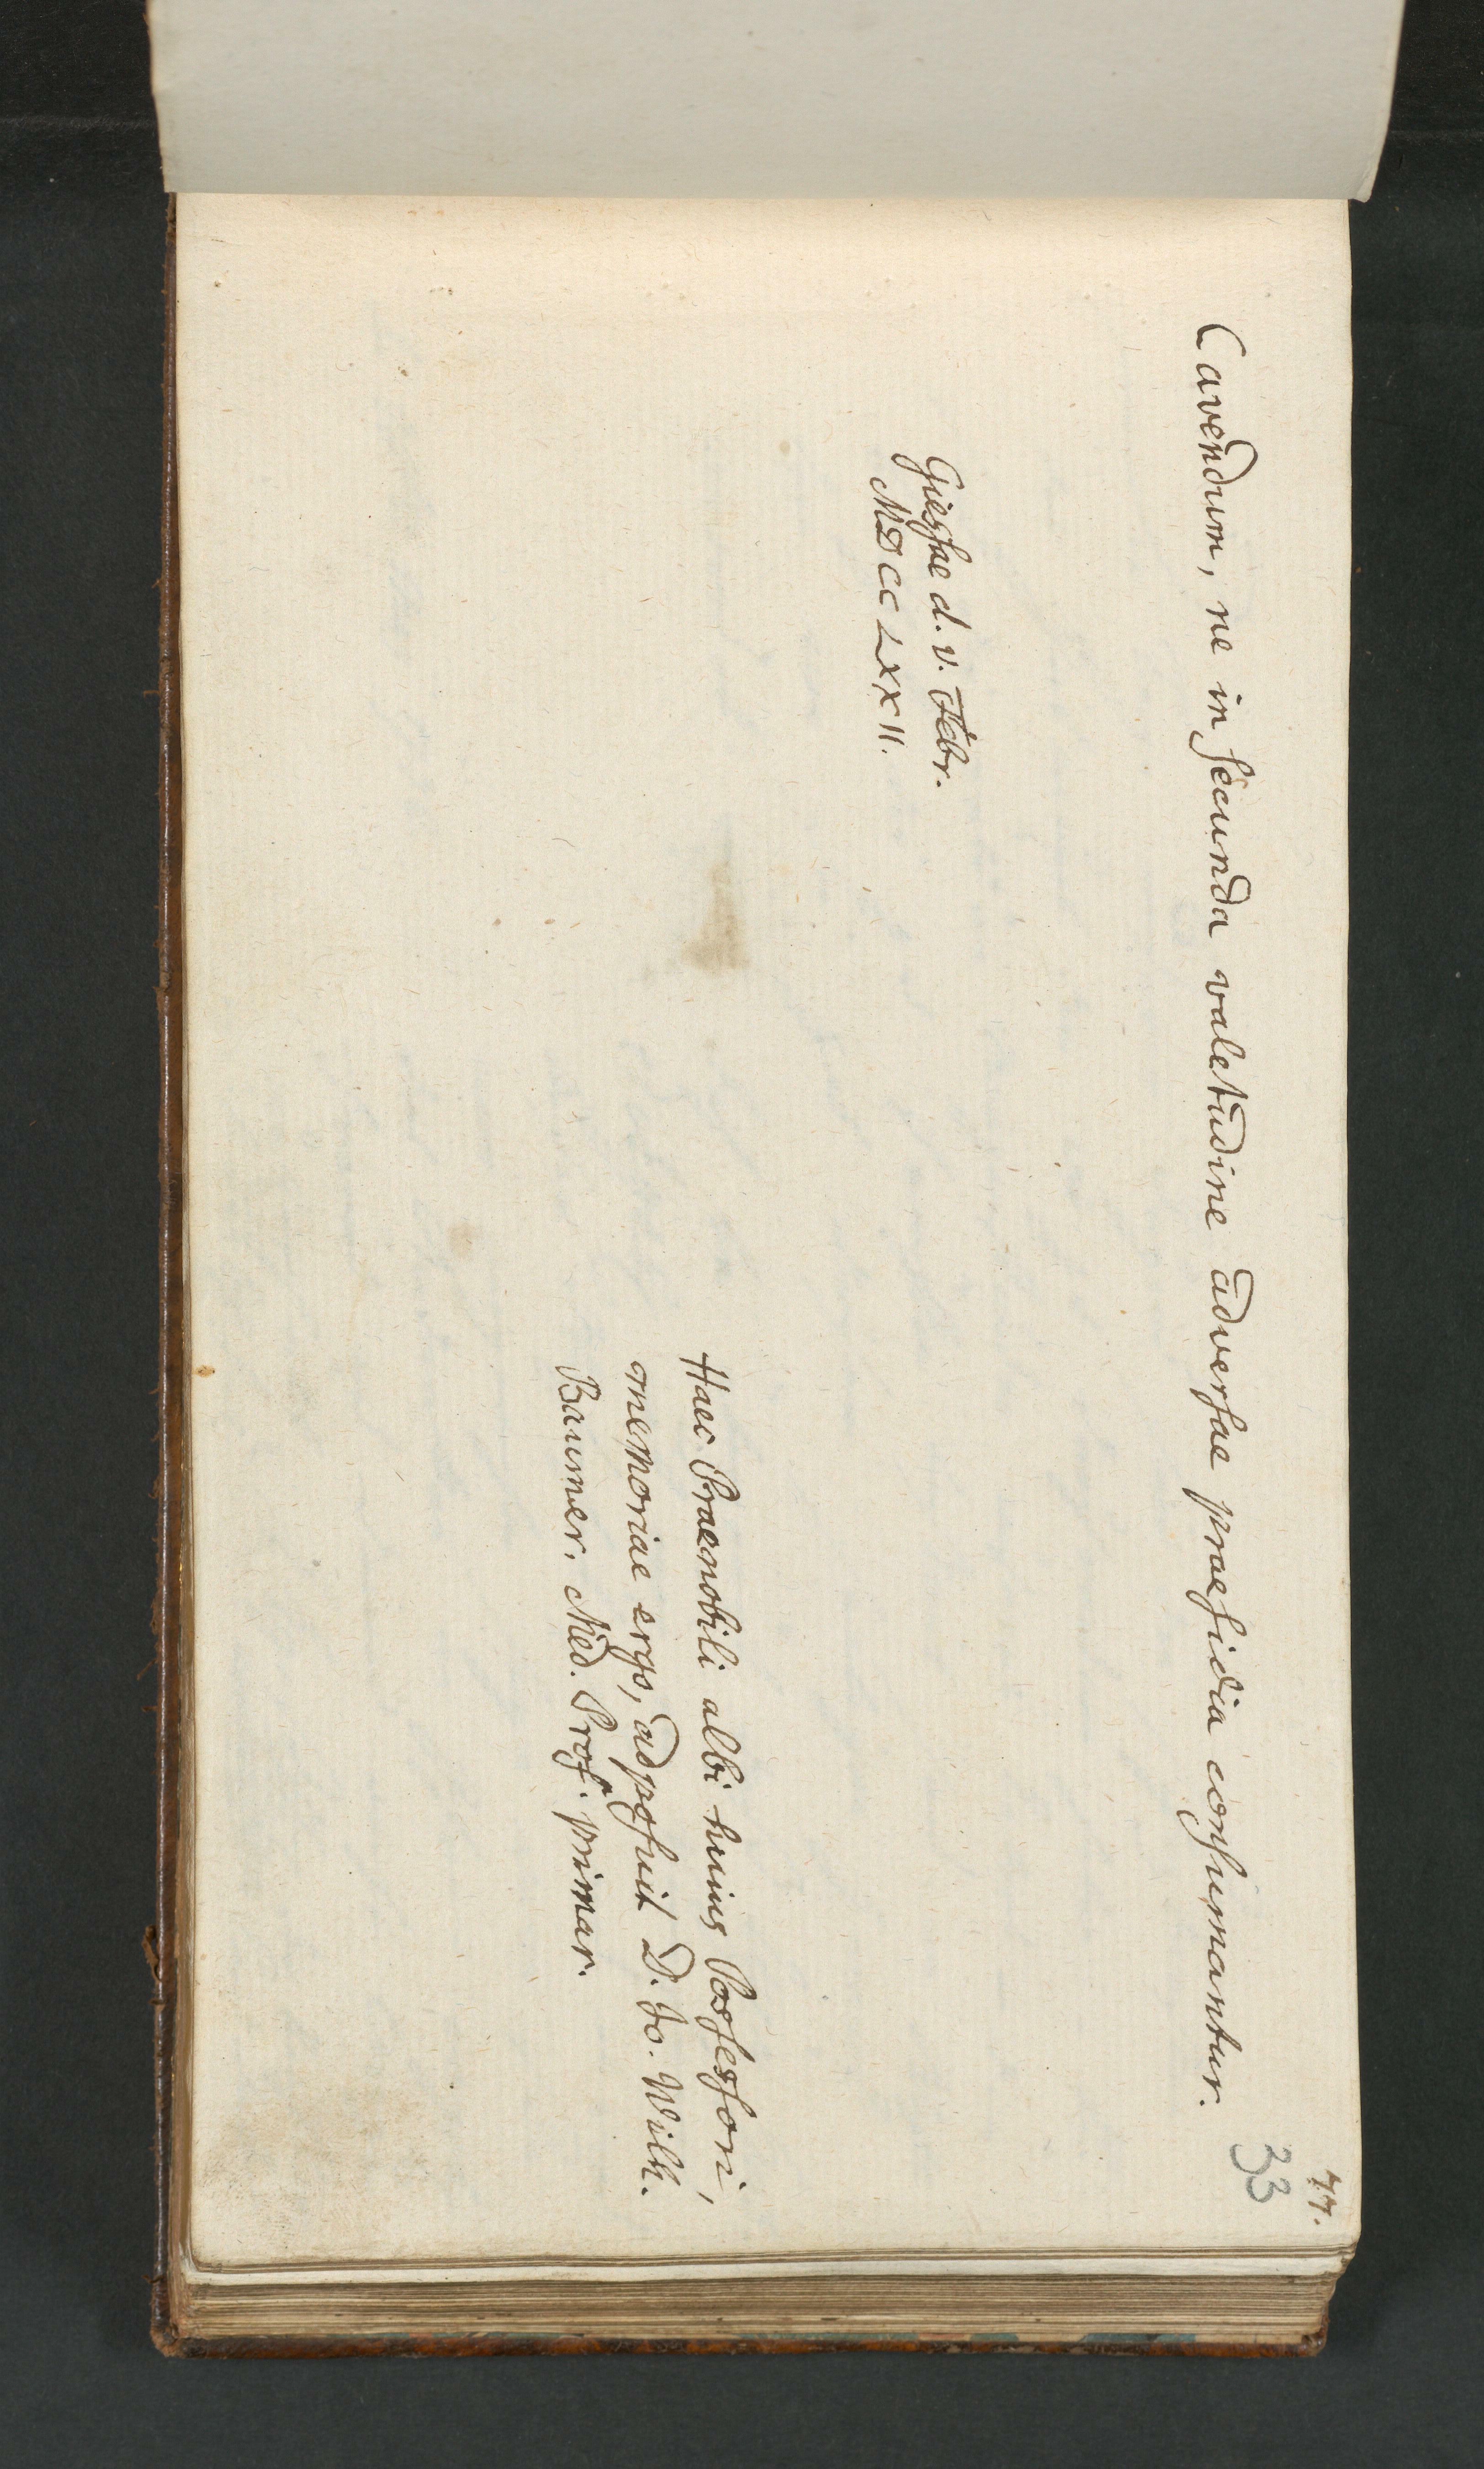 77.
33
Cavendum, ne in secunda valetudine adversae praesidia consumantur.
Giessae d. v. Febr.
MDCCLXXII.
Haec Praenobili albi huius Possessori,
memoriae ergo, adposuit D. Jo. Wilh.
Baumer, Med. Prof. primar.